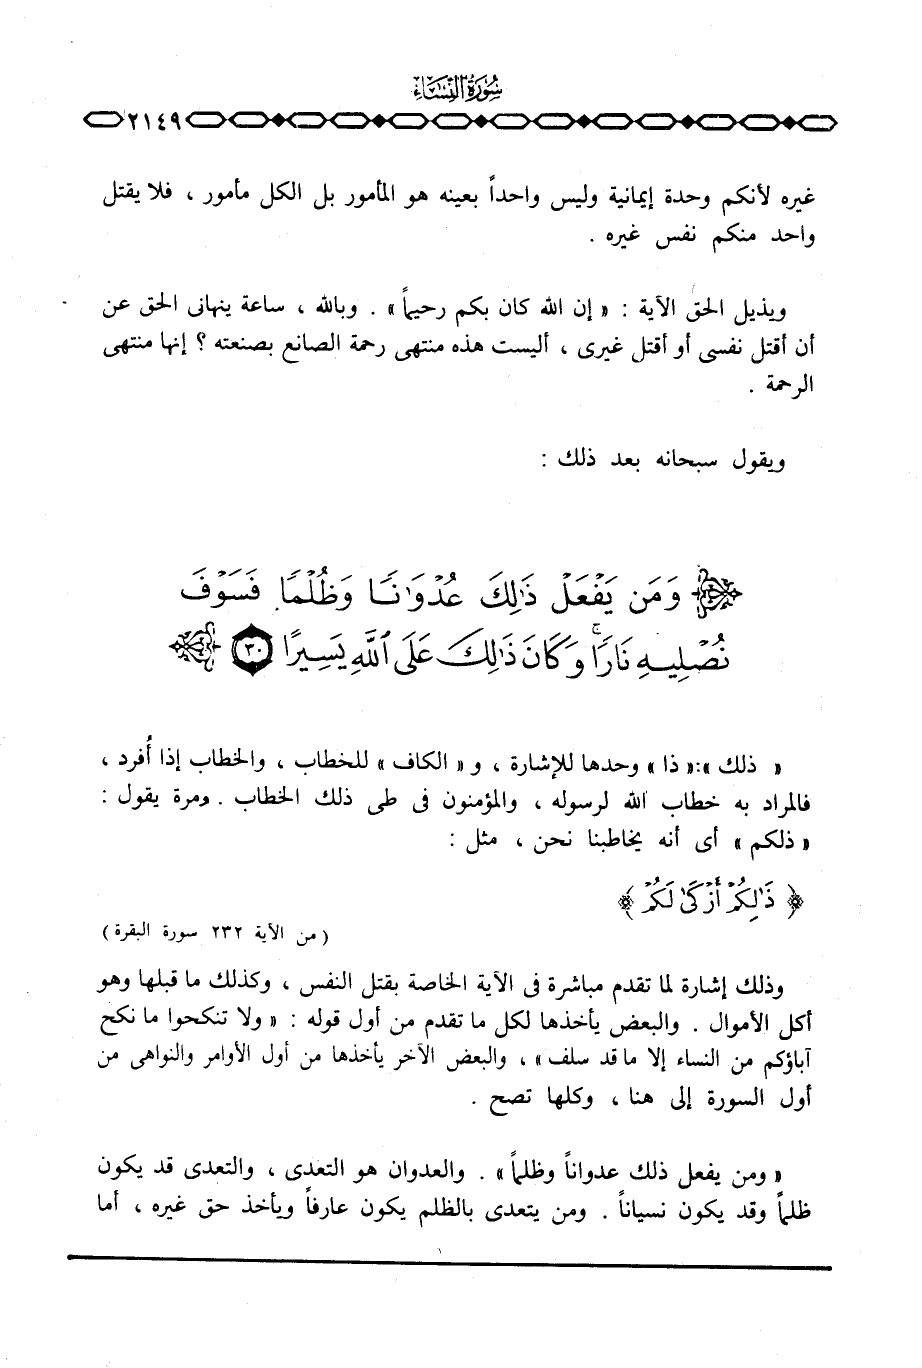 سُورَةُ النِّسَاء
٢١٤٩
غيره لأنكم وحدة إيمانية وليس واحداً بعينه هو المأمور بل الكل مأمور ، فلا يقتل
واحد منكم نفس غيره .
ويذيل الحق الآية : « إن الله كان بكم رحيماً » . وبالله ، ساعة ينهانى الحق عن
أن أقتل نفسى أو أقتل غيرى ، أليست هذه منتهى رحمة الصانع بصنعته ؟ إنها منتهى
الرحمة .
ويقول سبحانه بعد ذلك :
وَمَن يَفْعَلْ ذَٰلِكَ عُدْوَٰنًا وَظُلْمًا فَسَوْفَ
نُصْلِيهِ نَارًا ۚ وَكَانَ ذَٰلِكَ عَلَى ٱللَّهِ يَسِيرًا ٣٠
« ذلك »:« ذا » وحدها للإشارة ، و« الكاف » للخطاب ، والخطاب إذا أُفرد ،
فالمراد به خطاب الله لرسوله ، والمؤمنون فى طى ذلك الخطاب . ومرة يقول :
« ذلكم » أى أنه يخاطبنا نحن ، مثل :
﴿ ذَٰلِكُمْ أَزْكَىٰ لَكُمْ ﴾
( من الآية ٢٣٢ سورة البقرة )
وذلك إشارة لما تقدم مباشرة فى الآية الخاصة بقتل النفس ، وكذلك ما قبلها وهو
أكل الأموال . والبعض يأخذها لكل ما تقدم من أول قوله : « ولا تنكحوا ما نكح
آباؤكم من النساء إلا ما قد سلف » ، والبعض الآخر يأخذها من أول الأوامر والنواهى من
أول السورة إلى هنا ، وكلها تصح .
« ومن يفعل ذلك عدواناً وظلماً » . والعدوان هو التعدى ، والتعدى قد يكون
ظلماً وقد يكون نسياناً . ومن يتعدى بالظلم يكون عارفاً ويأخذ حق غيره ، أما